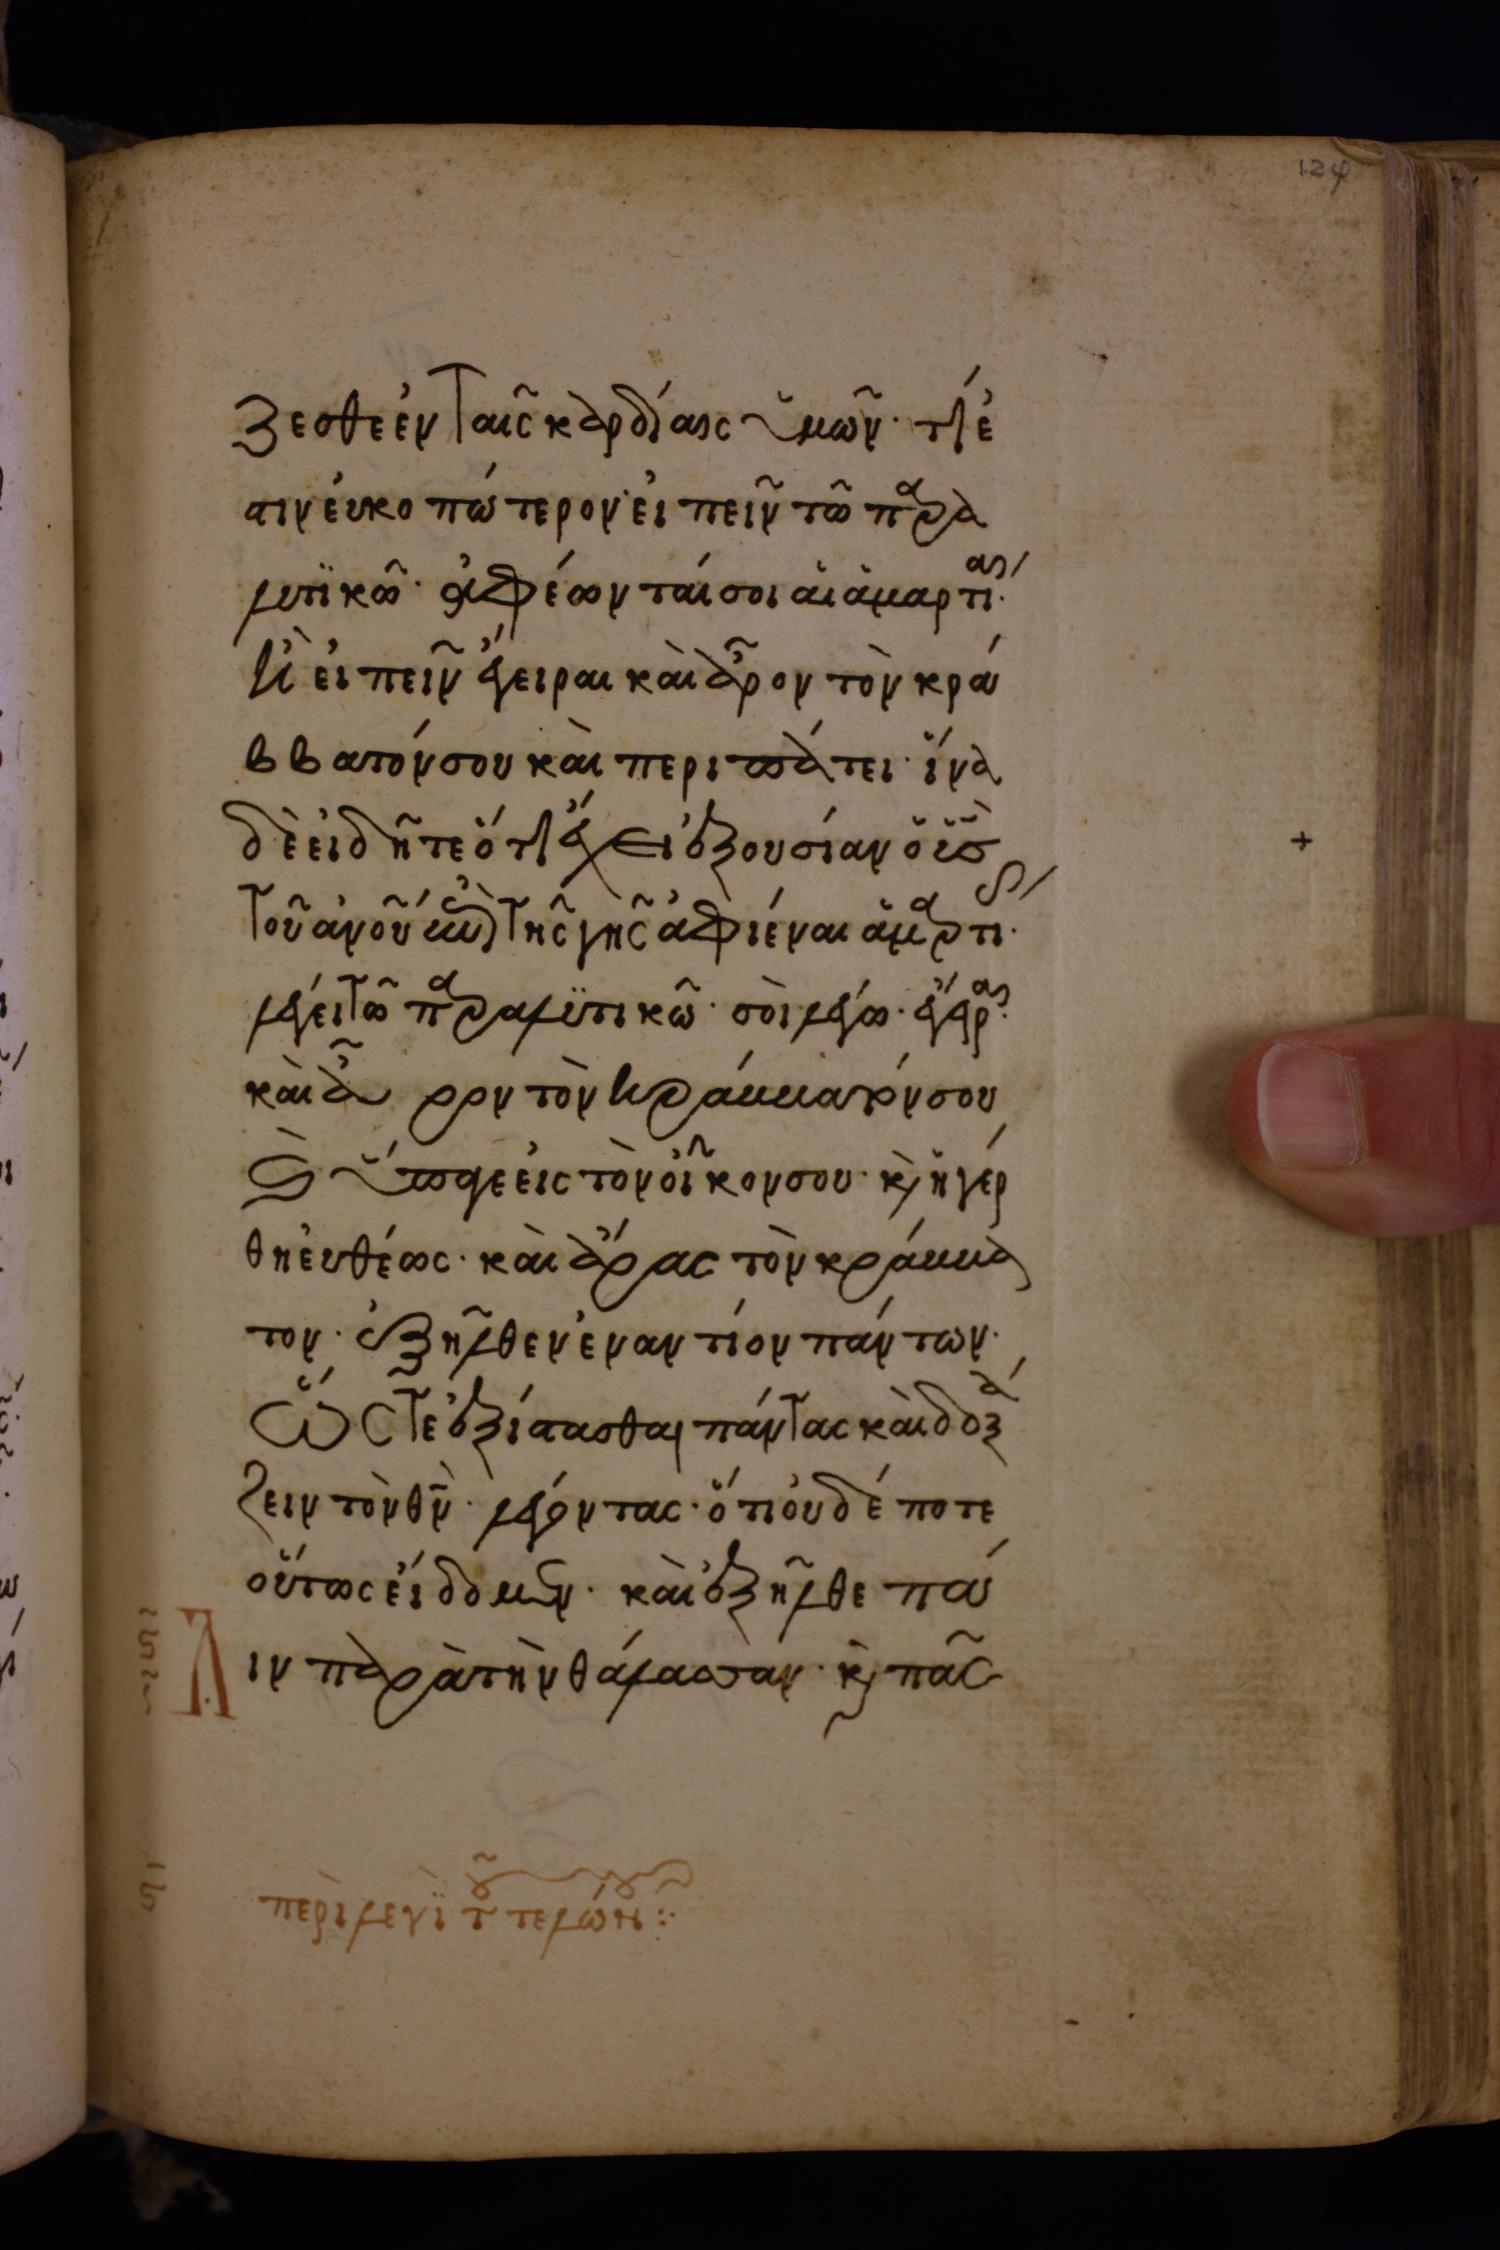 124
ζεσθε ἐν ταῖς καρδίαις ὑμῶν· τί ἐ
στιν ἐυκοπώτερον· ἐιπεῖν τῶ παρα
λυτϊκῶ· ἀφέωνταί σοι ἁι ἁμαρτίαι·
ἢ ἐιπεῖν ἔγειραι καὶ ἆρον τὸν κρά
ββατόν σου καὶ περιπάτει· ἵνα
δὲ ἐιδῆτε ὅτι ἔχει ἐξουσίαν ὁ υἱὸσ
τοῦ ἀνοῦ ἐπὶ τῆς γῆς ἀφιέναι ἁμαρτίας·
λέγει τῶ παραλϋτικῶ· σὸι λέγω· ἔγειραι
καὶ ἆρον τὸν κράββατόν σου
καὶ ὕπαγε ἐις τὸν οἶκον σου· κὶ ἠγέρ
θη ἐυθέως· καὶ ἄρας τὸν κράββα
τον· ἐξῆλθεν ἐναντίον πάντων·
ὥςτε ἐξίστασθαι πάντας καὶ δοξά
ζειν τὸν θν̄· λέγοντας· ὅτι ὀυδέποτε
οὕτως ἐίδομεν· καὶ ἐξῆλθε πά
Λιν παρὰ τὴν θάλασσαν· κὶ πᾶς
περὶ λεγὶ τοῦ τελώνου:·